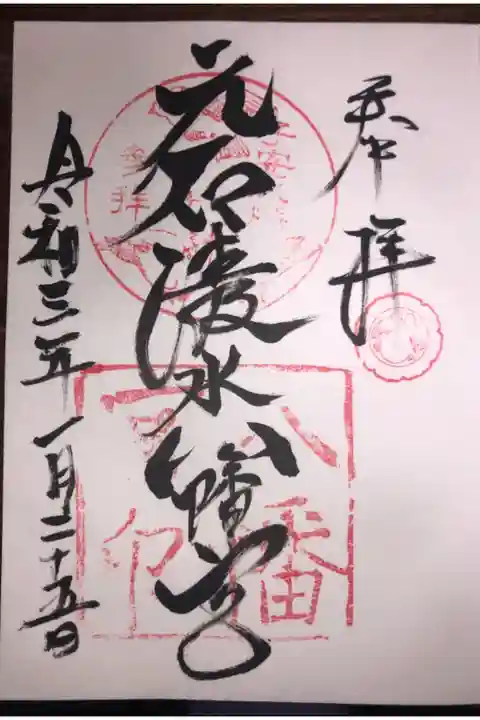 奉拝
元石清水八幡宮
令和三年一月二十五日
参拝